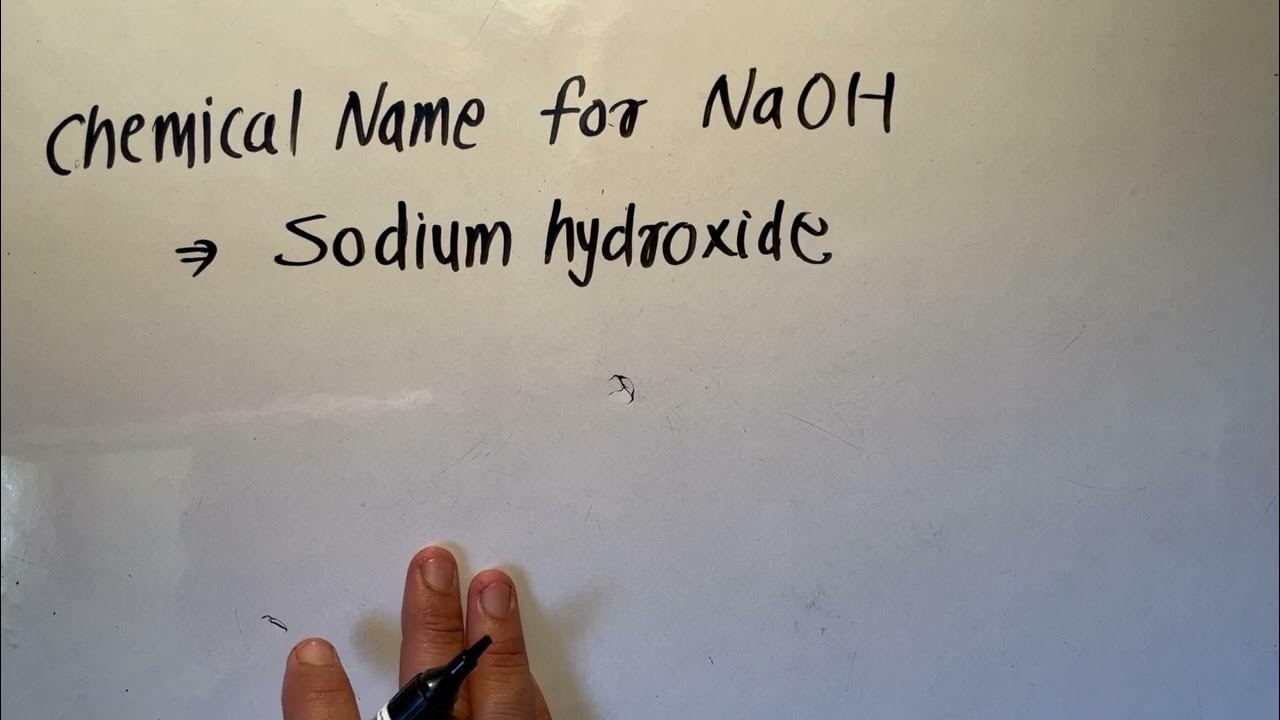 Chemical Name for NaOH
⇒ Sodium hydroxide